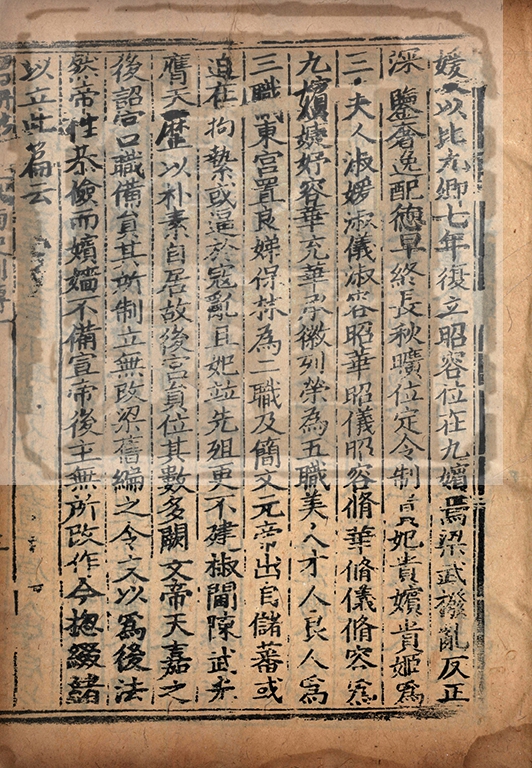 媛以比九卿七年復立昭容位在九嬪焉梁武撥亂反正
深鑒奢逸配德早終長秋曠位定令制貴妃貴嬪貴姬爲
三夫人淑媛淑儀淑容昭華昭儀昭容脩華脩儀脩容爲
九嬪婕妤容華充華承徽列榮爲五職美人才人良人爲
三職東宮置良娣保林為二職及簡文元帝出自儲蕃或
迫在拘縶或逼於寇亂且妃並先殂更不建椒閫陳武光
膺天曆以朴素自居故後宮員位其數多闕文帝天嘉之
後詔宮職備員其所制立無改梁舊編之令文以爲後法
然帝性恭儉而嬪嬙不備宣帝後主無所改作今揔綴緒
以立此篇云